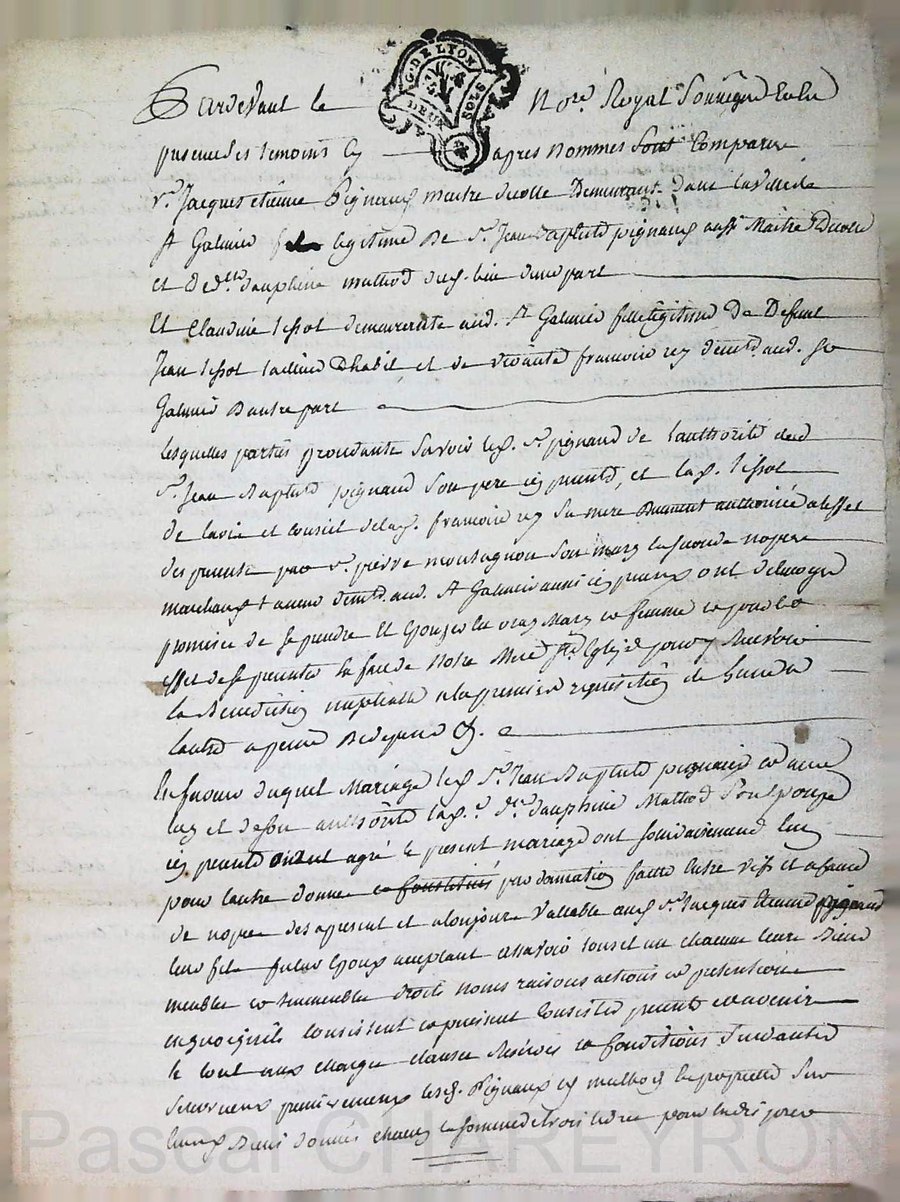 G. DE LYON
DEUX SOLS
Pardevant le Nore. Royal Soussigné et en
presence des temoins cy apres nommés sont comparu
sr. Jacques etienne Pignaud maitre decolle Demeurant dans la ville de
st Galmier fils legitime de sr. Jean Baptiste pignaud aussi Maitre Decolle
et de d.lle dauphine mathod d'une part
Et Claudine tissot demeurante aud. st Galmier fille legitime de Defunt
Jean tissot tailleur Dhabit et de vivante francoise rey demte. aud. st
Galmier Dautre part
lesquelles parties procedante savoir led. sr. pignaud de l'authorité dud
sr. Jean Baptiste pignaud son pere icy present, et lad. tissot
de lavis et conseil de lad. francoise rey sa mere Duement authorisée a leffet
des presente par sr. pierre montagnon son mary en seconde nopce
marchand taneur demt. aud. st Galmier aussi icy present ont
promis de se prendre et Epouser en vray Mary et femme et pour
effet de se presenter en face de Notre Mere ste. Eglise pour y Recevoir
la Benediction nuptialle a la premiere requisition de lun de
lautre a peine De depend &.
En faveur duquel Mariage led. sr. Jean Baptiste pignaud et avec
luy et de son authorité lad. dlle. dauphine Mathod son epouse
icy presente ont agré le present mariage ont solidairement lun
pour lautre donne et constitués par donation faite entre vifs et a cause
de nopce des a present et a toujour Vallable aud. sr. Jacques Etienne pignaud
leur fils futur Epoux acceptant assavoir tous et un chacun leurs Biens
meuble et Immeuble droits noms raisons actions et pretentions
en quoi quils consistent et puissent Consister present et avenir
le tout aux charge clause Reserves et Conditions Suivantes
premierement lesd. Pignaud et mathod se sur
leurs Biens donnés chacun la somme de trois livre pour en disposer
Pascal CHAREYRON